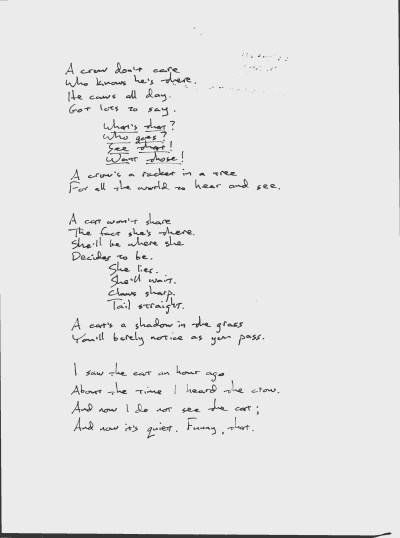 A crow don't care
Who knows he's there.
He caws all day.
Got lots to say.
What's that?
Who goes?
See that!
Want those!
A crow's a racket in a tree
For all the world to hear and see.
A cat won't share
The fact she's there.
She'll be where she
Decides to be.
She lies.
She'll wait.
Claws sharp.
Tail straight.
A cat's a shadow in the grass
You'll barely notice as you pass.
I saw the cat an hour ago
About the time I heard the crow.
And now I do not see the cat;
And now it's quiet. Funny, that.